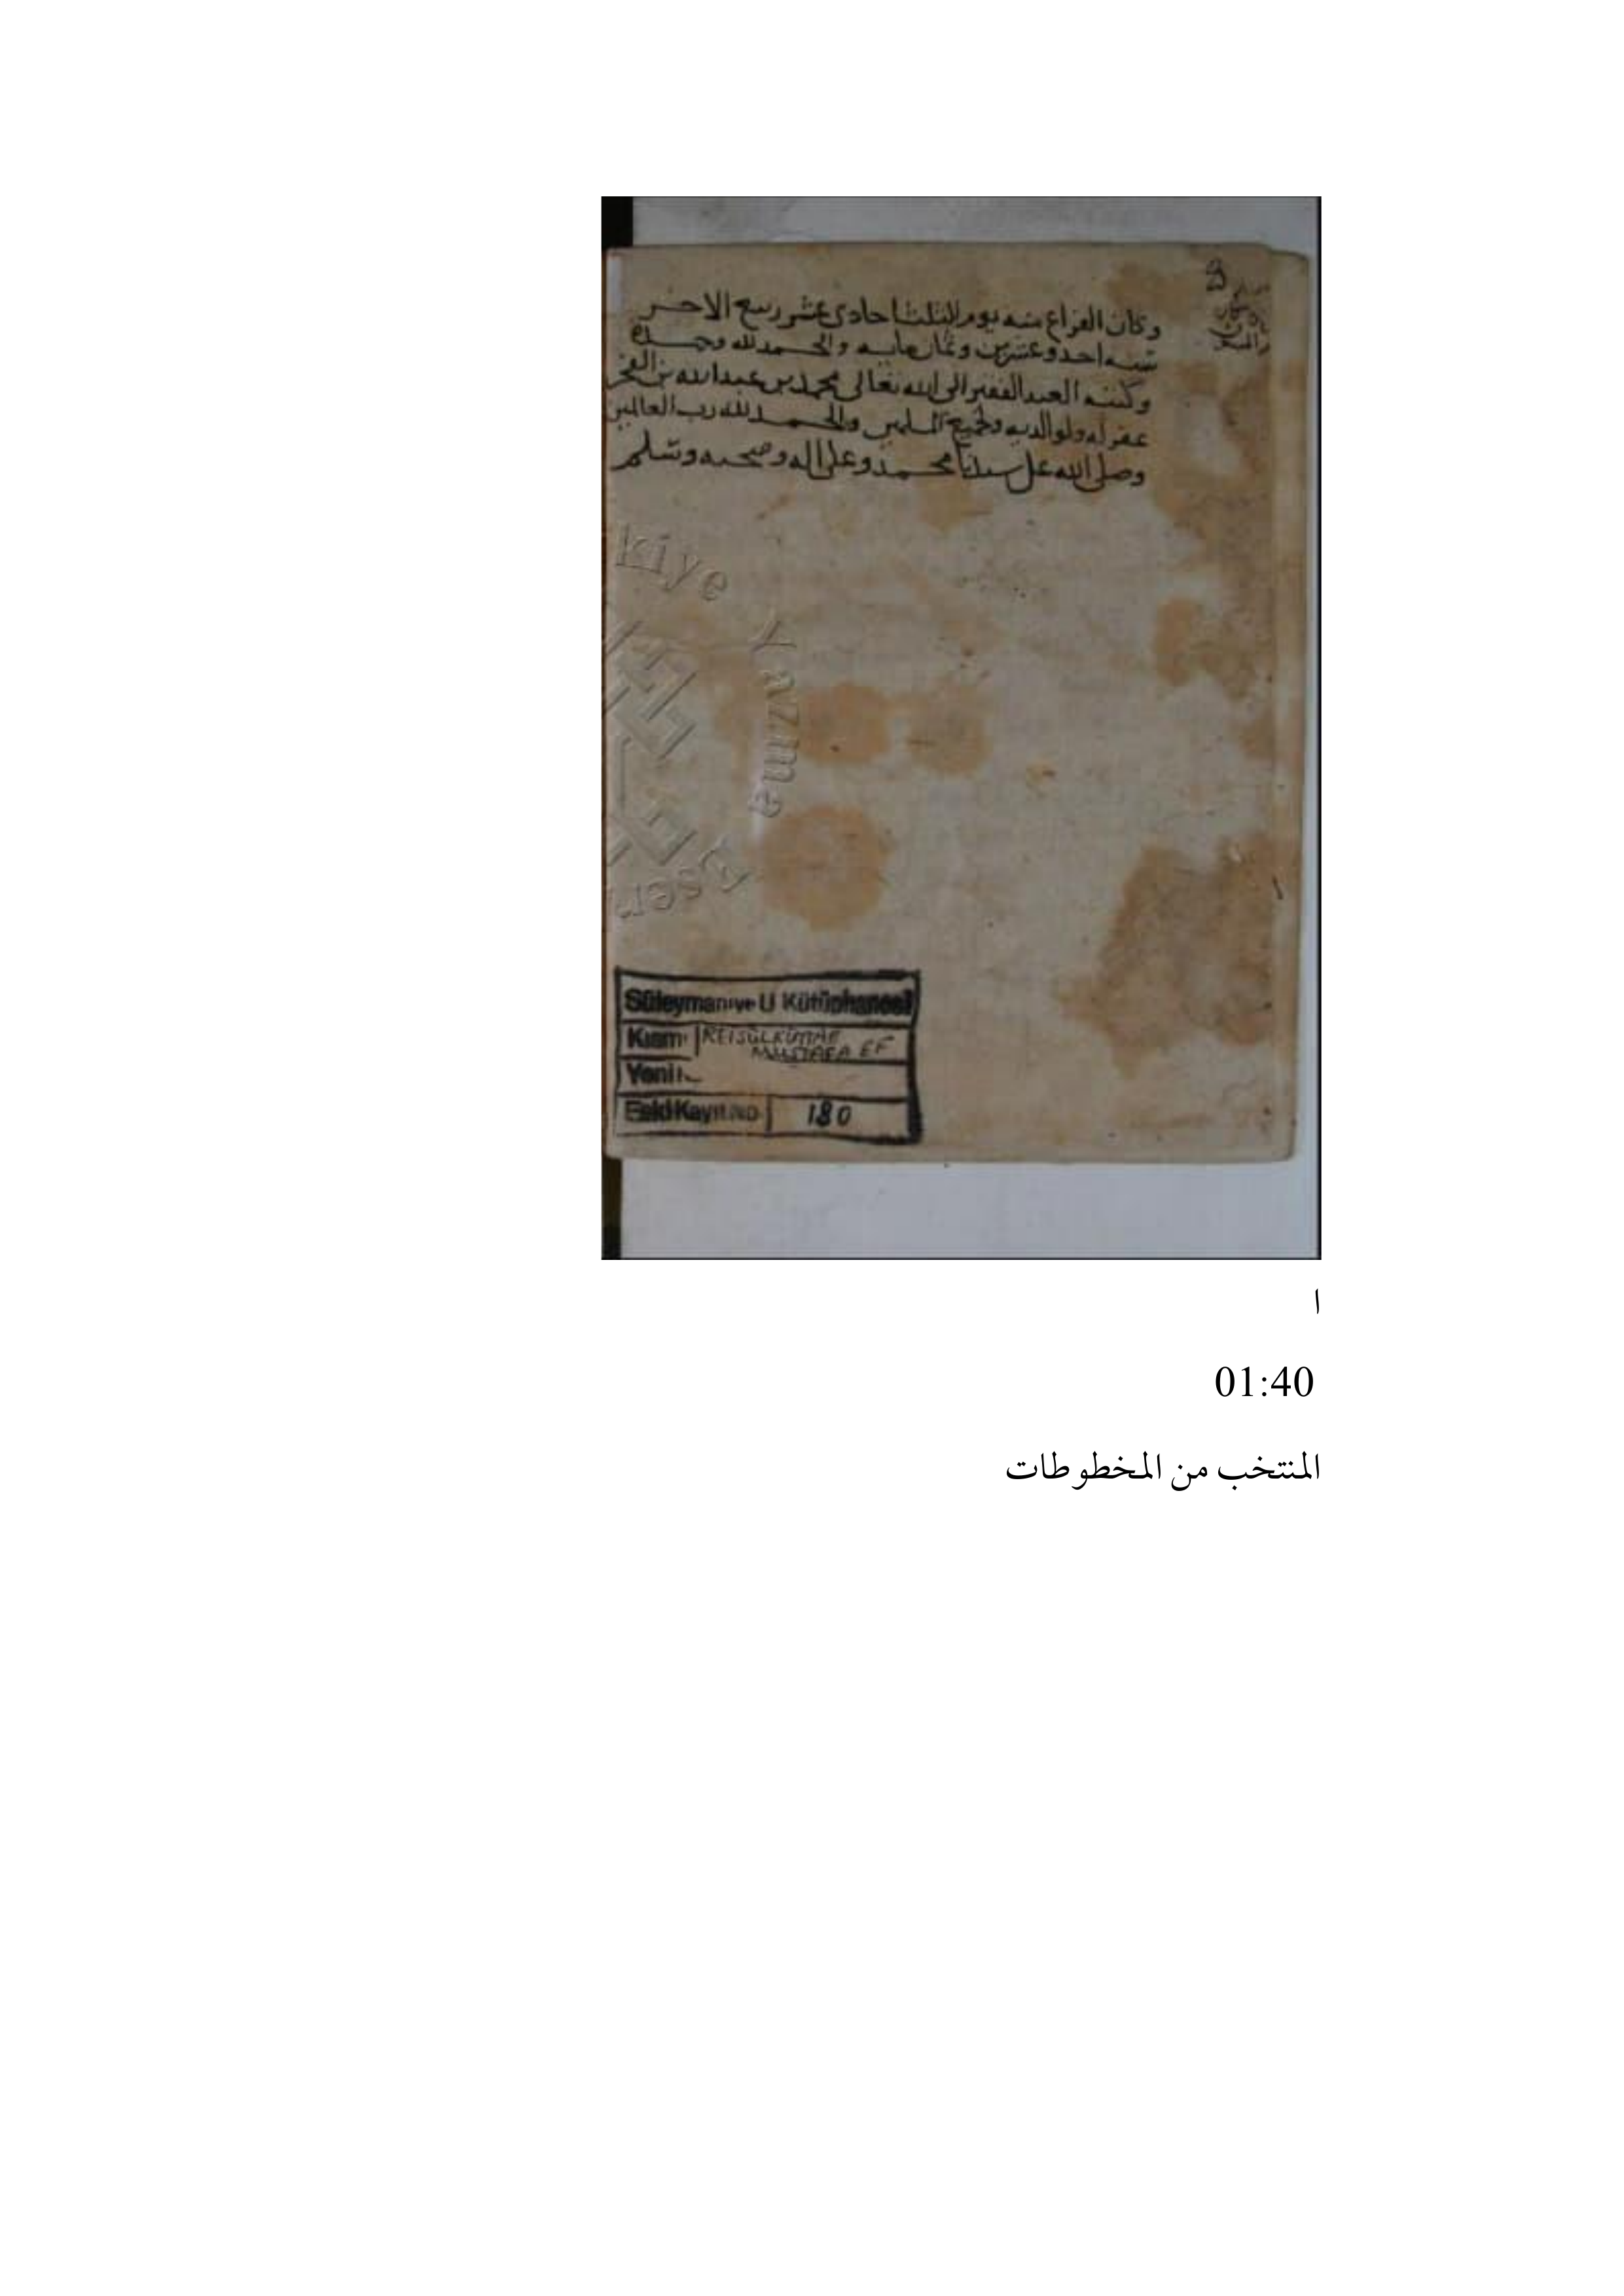 وكان الفراغ منه يوم الثلثا حادي عشر ربيع الاخر
سنه احد وعشرين وثمان مايه والحمد لله وحده
وكتبه العبد الفقير الى الله تعالى محمد بن عبد الله بن الفخر
غفر له ولوالديه ولجميع المسلمين والحمد لله رب العالمين
وصلى الله على سيدنا محمد وعلى اله وصحبه وسلم
kiye
Yazma
Eser
Süleymaniye U Kütüphanesi
Kısmı REISÜLKÜTTAB MUSTAFA EF
Yeni
Eski Kayıt No. 180
ا
01:40
المنتخب من المخطوطات